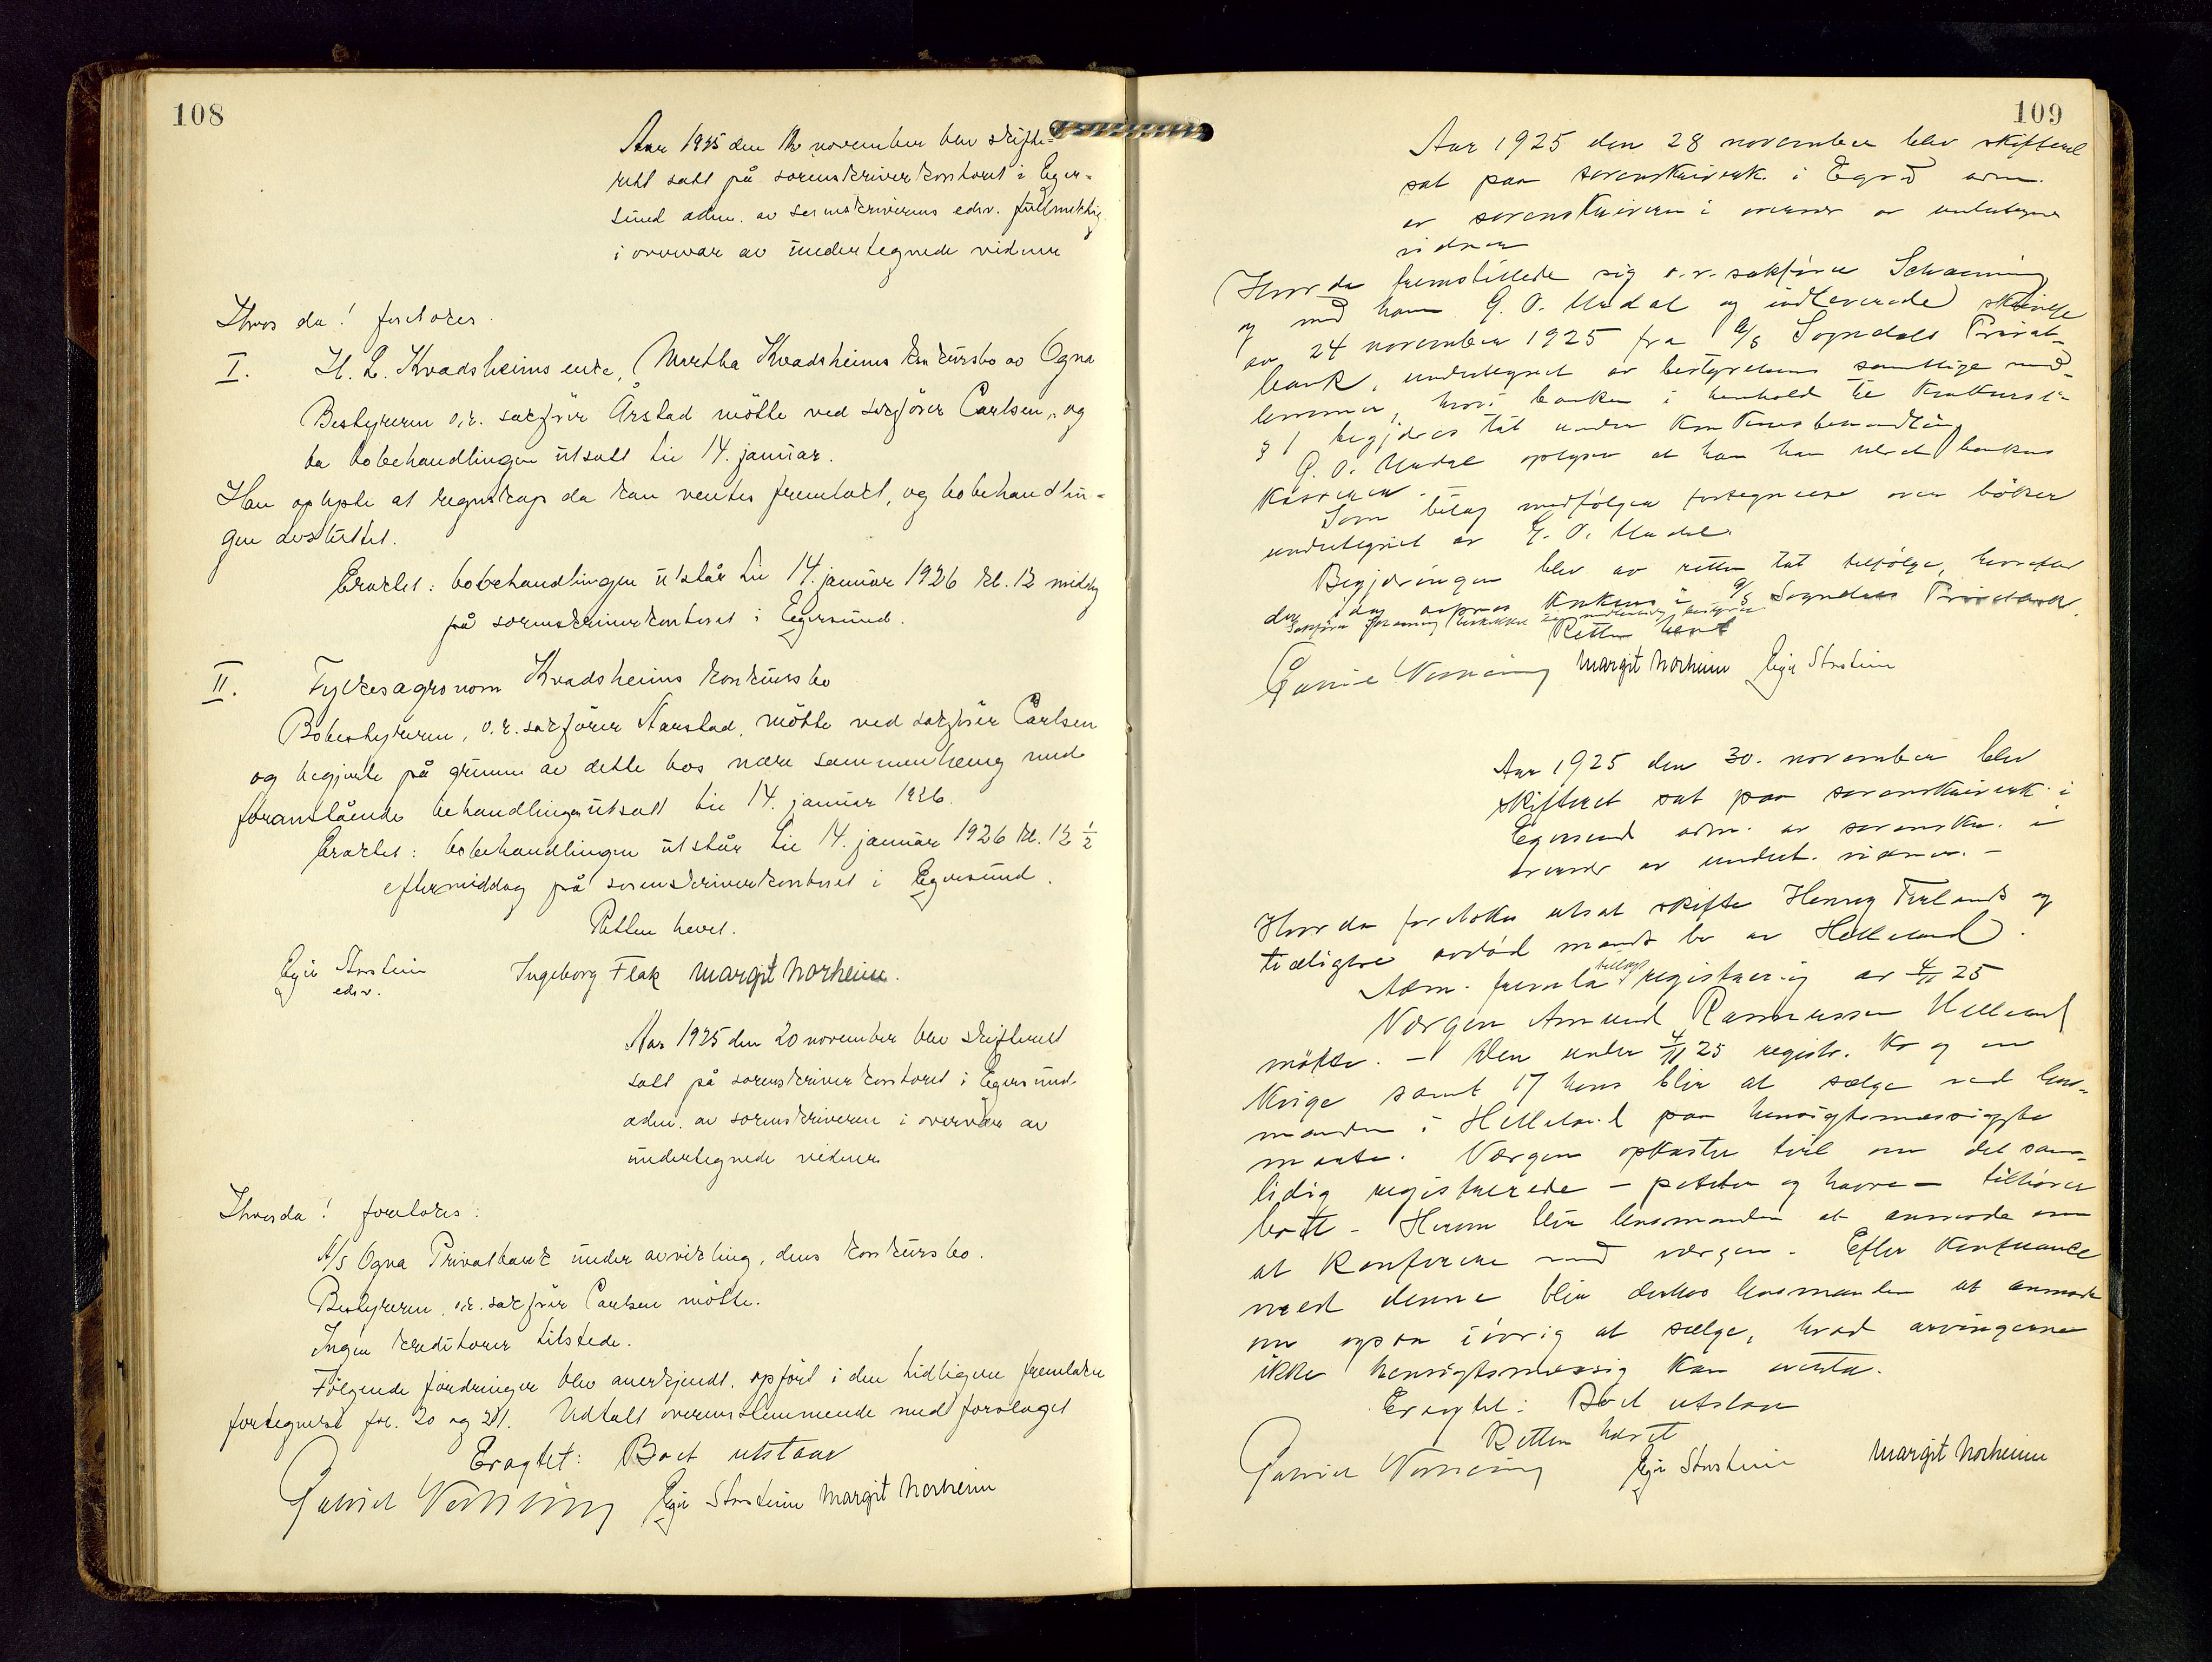 108
Aar 1925 den 12 november blev skifte-
rett satt på sorenskriverkontoret i Eger-
sund adm. av sorenskriverens edsv. fullmektig
i overvær av undertegnede vidner
Hvor da! foretokes
I. H. L. Kvadsheims enke, Martha Kvadsheims konkursbo av Ogna
Bestyreren o.r. sakfører Årstad møtte ved sakfører Carlsen, og
ba bobehandlingen utsatt til 14. januar.
Han oplyste at regnskap da kan ventes fremlakt, og bobehandlin-
gen avsluttet.
Eraktet: bobehandlingen utstår til 14. januar 1926 kl. 12 middag
på sorenskriverkontoret i Egersund.
II. Fylkesagronom Kvadsheims konkursbo
Bobestyreren, o.r. sakfører Aarstad, møtte ved sakfører Carlsen
og begjærte på grunn av dette bos nære sammenheng med
foranstående behandlingen utsatt til 14. januar 1926.
Eraktet: bobehandlingen utstår til 14. januar 1926 kl. 12 1/2
eftermiddag på sorenskriverkontoret i Egersund.
Retten hevet.
Ingeborg Flak Margit Norheim.
edsv.
Aar 1925 den 20 november blev skifterett
satt på sorenskriverkontoret i Egersund
adm. av sorenskriveren i overvær av
undertegnede vidner
Hvorda! foretokes:
A/S Ogna Privatbank under avvikling, dens konkursbo.
Bestyreren, o.r. sakfører Carlsen møtte.
Ingen kreditorer tilstede.
Følgende fordringer blev anerkjendt, opført i den tidligere fremlakte
fortegnelse fol. 20 og 21. Uttalt overensstemmende med forslaget
Eragtet: Boet utstaar
Margit Norheim
109
Aar 1925 den 28 november blev skifteret
sat paa sorenskriverk. i Egrsd adm.
av sorenskriveren i overvær av undertegnede
vidner
Hvor da fremstillede sig o.r.sakfører Schanning
og med ham G. O. Uadal og indleverede skrivelse
av 24 november 1925 fra A/S Sogndals Privat-
bank, undertegnet av bestyrelsens samtlige med-
lemmer, hvori banken i henhold til konkursl.
§ 1 begjæres tat under konkursbehandling
G. O. Uadal oplyser at han har været bankens
kasserer. -
Som bilag medfølger fortegnelse over bøker
undertegnet av G. O. Uadal.
Begjæringen blev av retten tat tilfølge, hvorefter
der idag aapnes konkurs i A/S Sogndals Privatbank.
Sakfører Schanning beskikkes til midlertidig bestyrer
Retten hævet
Margit Norheim
Aar 1925 den 30. november blev
skifteret sat paa sorenskriverk. i
Egersund adm. av sorenskr. i
overvær av undert. vidner. -
Hvor da foretokes utsat skifte Henrey Tveland og
tidligere avdød mands bo av Helleland.
Adm. fremla tillægsregistrering av 4/11 25
Værgen Amund Rasmussen Helleland
møtte. - Den under 4/11 25 registr. ko og en
kvige samt 17 høns blir at sælge ved lens-
manden i Helleland paa hensigtsmæssigste
maate. Værgen opkaster tvil om det sam-
tidig registrerede - poteter og havre - tilhører
boet - Herom blir lensmanden at anmode om
at konferere med værgen. Efter konferance
med denne blir derhos lensmanden at anmode
om ogsaa iøvrig at sælge, hvad arvingerne
ikke hensigtsmæssig kan overta.
Eragtet: Boet utstaar
Retten hævet
Margit Norheim